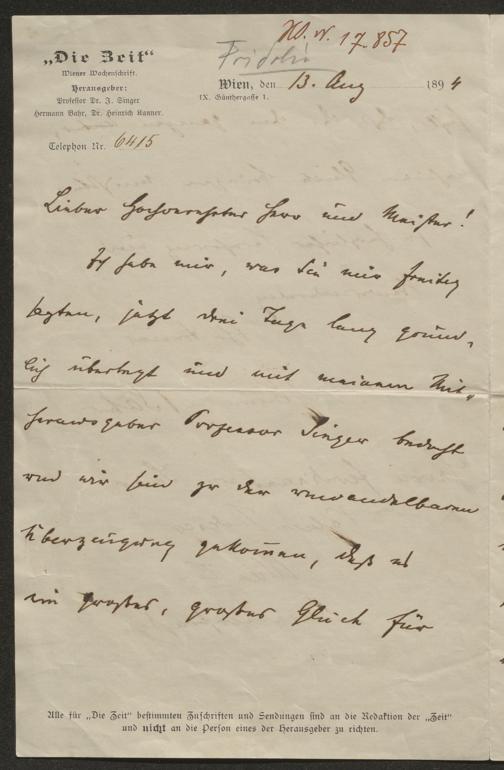 H. N. 17.857
Fridolin
„Die Zeit“
Wiener Wochenschrift.
Herausgeber:
Professor Dr. J. Singer
Hermann Bahr, Dr. Heinrich Kanner.
Telephon Nr. 6415
Wien, den 13. Aug 1894
IX. Günthergasse 1.
Lieber hochverehrter Herr und Meister!
Ich habe mir, was Sie mir Freitag
sagten, jetzt drei Tage lang gründ-
lich überlegt und mit meinem Mit-
herausgeber Professor Singer bedacht
und wir sind zu der unwandelbaren
Überzeugung gekommen, daß es
ein großes, großes Glück für
Alle für „Die Zeit“ bestimmten Zuschriften und Sendungen sind an die Redaktion der „Zeit“
und nicht an die Person eines der Herausgeber zu richten.